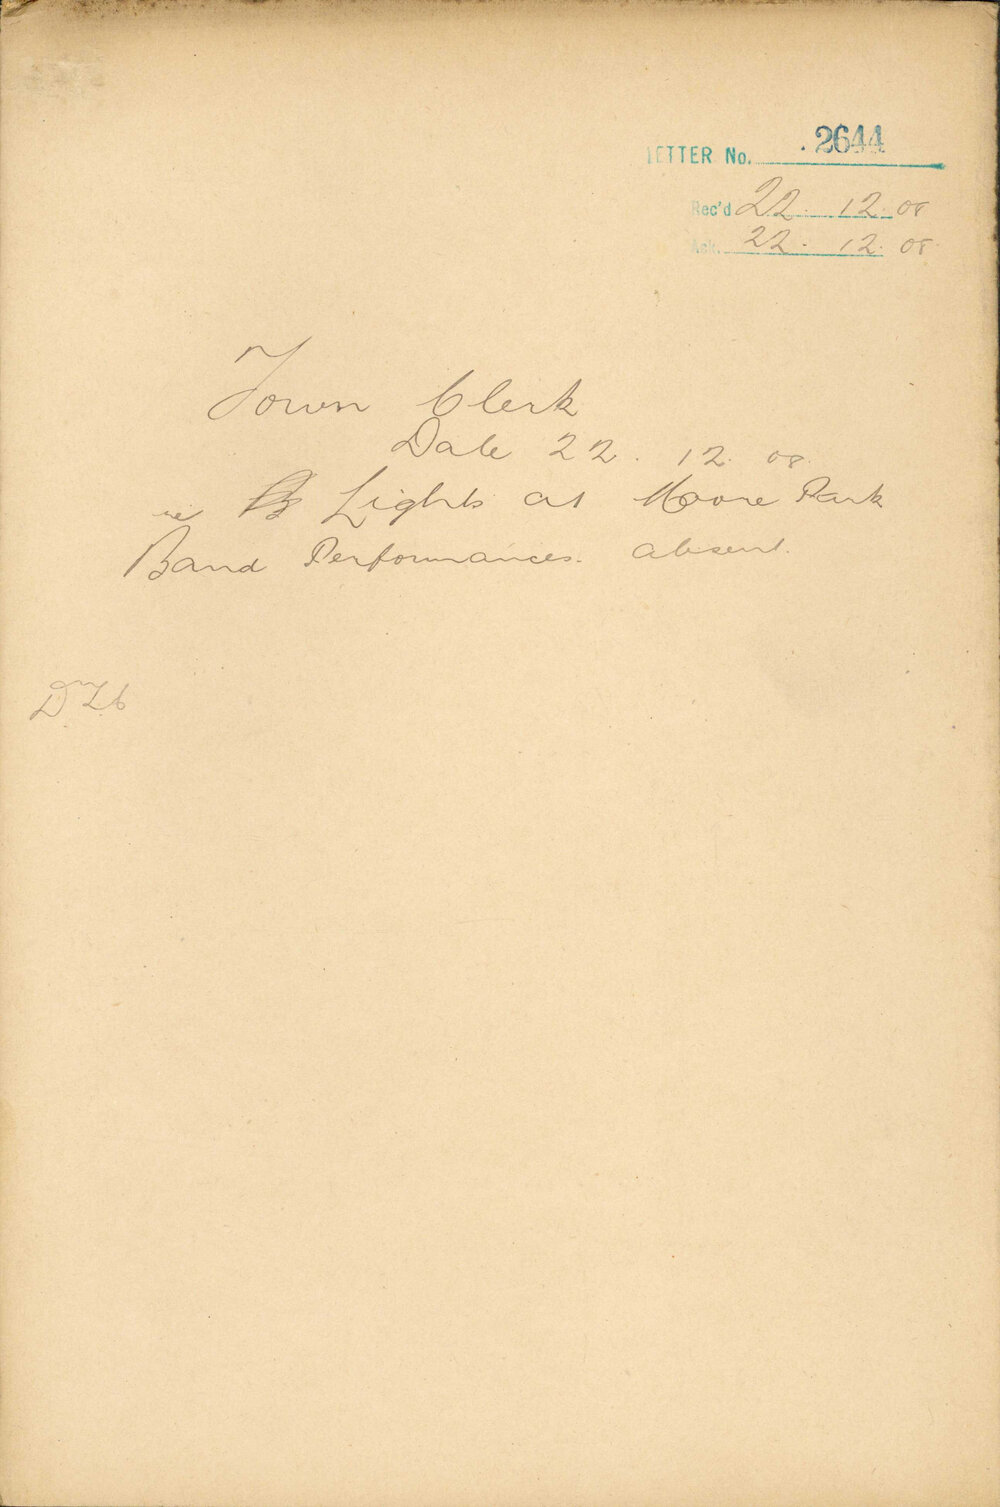 LETTER No. 2644
Rec'd 22. 12. 08
Ack. 22. 12. 08
Town Clerk
Date 22. 12. 08.
re Lights at Moore Park
Band Performances. absent.